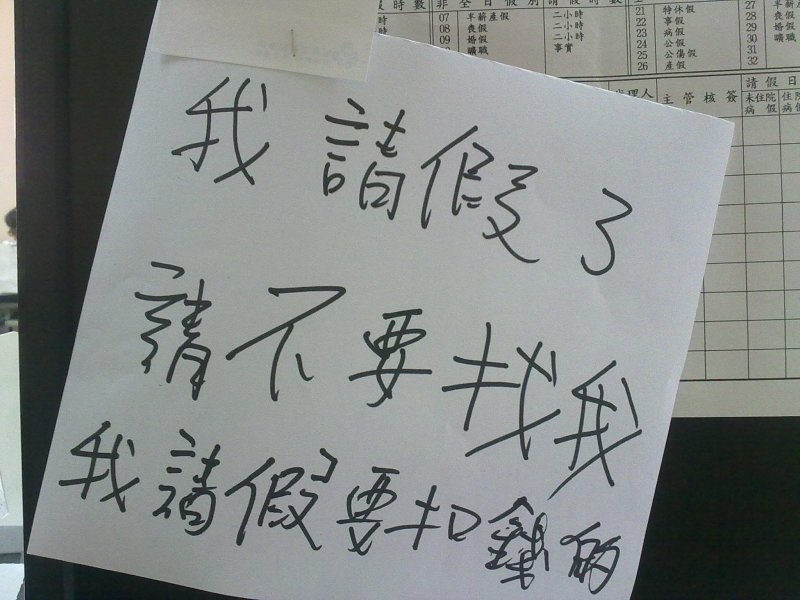 時數 非全日假別 請假時數
07 半薪產假 二小時 21 特休假 27 半
08 喪假 二小時 22 事假 28 喪假
09 婚假 二小時 23 病假 29 婚假
10 曠職 事實 24 公假 30 曠職
25 公傷假 31
26 產假 32
請假日
代理人 主管核簽 未住院病假 住院病假
我請假了
請不要找我
我請假要扣錢的